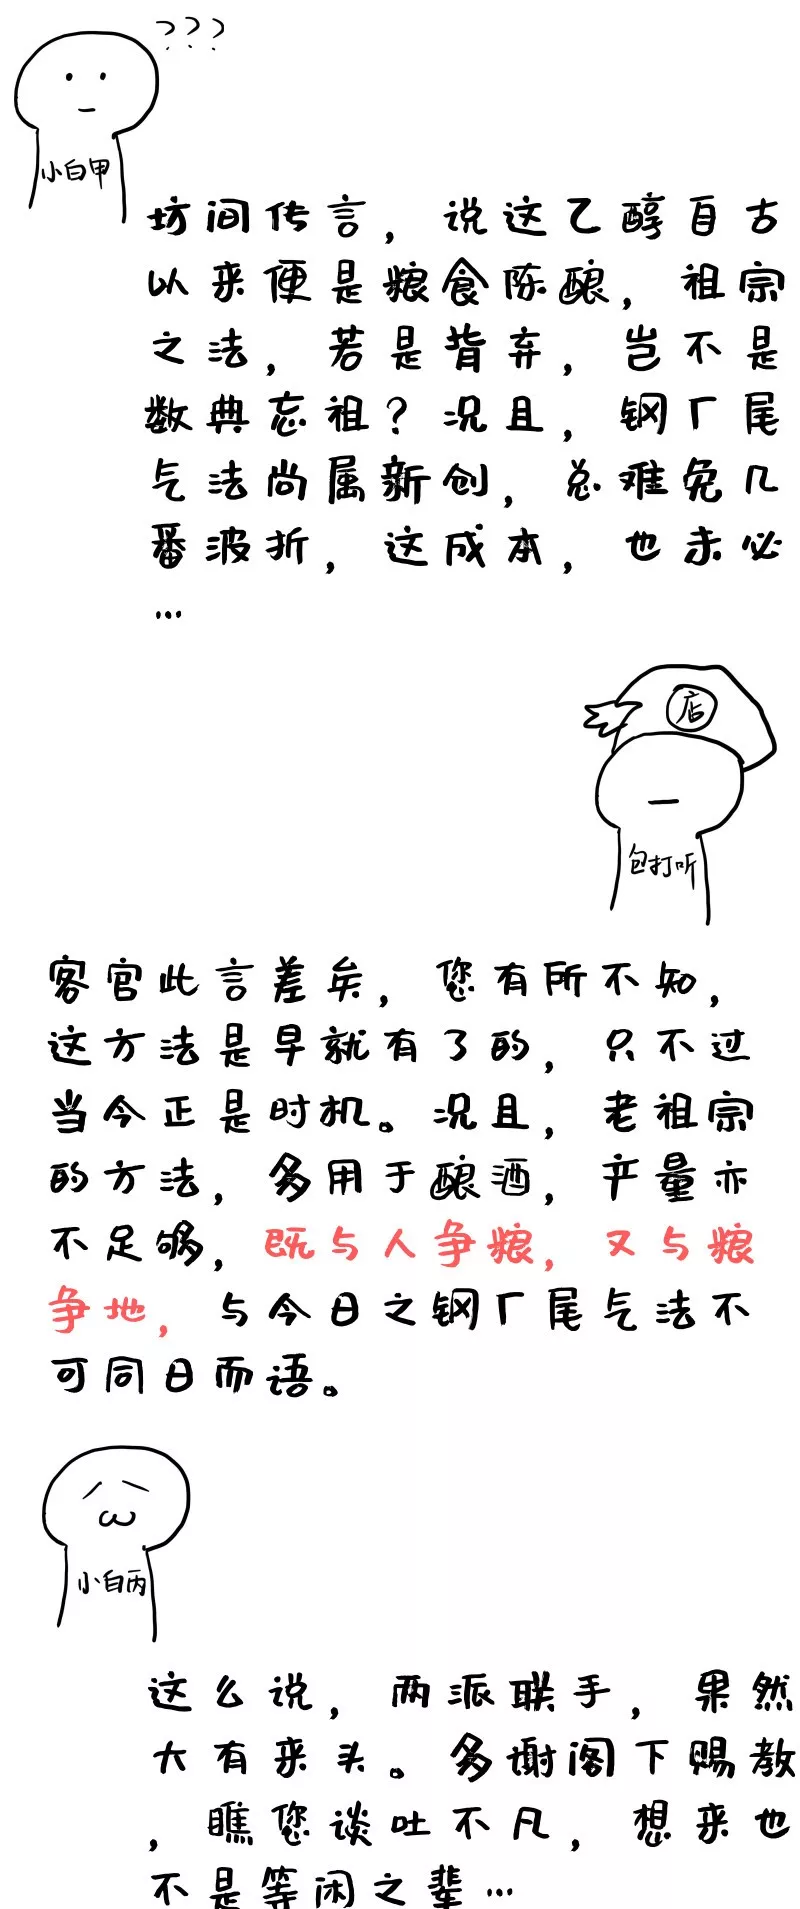 ???
小白甲
坊间传言，说这乙醇自古
以来便是粮食陈酿，祖宗
之法，若是背弃，岂不是
数典忘祖？况且，钢厂尾
气法尚属新创，总难免几
番波折，这成本，也未必
…
店
包打听
客官此言差矣，您有所不知，
这方法是早就有了的，只不过
当今正是时机。况且，老祖宗
的方法，多用于酿酒，产量亦
不足够，既与人争粮，又与粮
争地，与今日之钢厂尾气法不
可同日而语。
小白丙
这么说，两派联手，果然
大有来头。多谢阁下赐教
，瞧您谈吐不凡，想来也
不是等闲之辈…